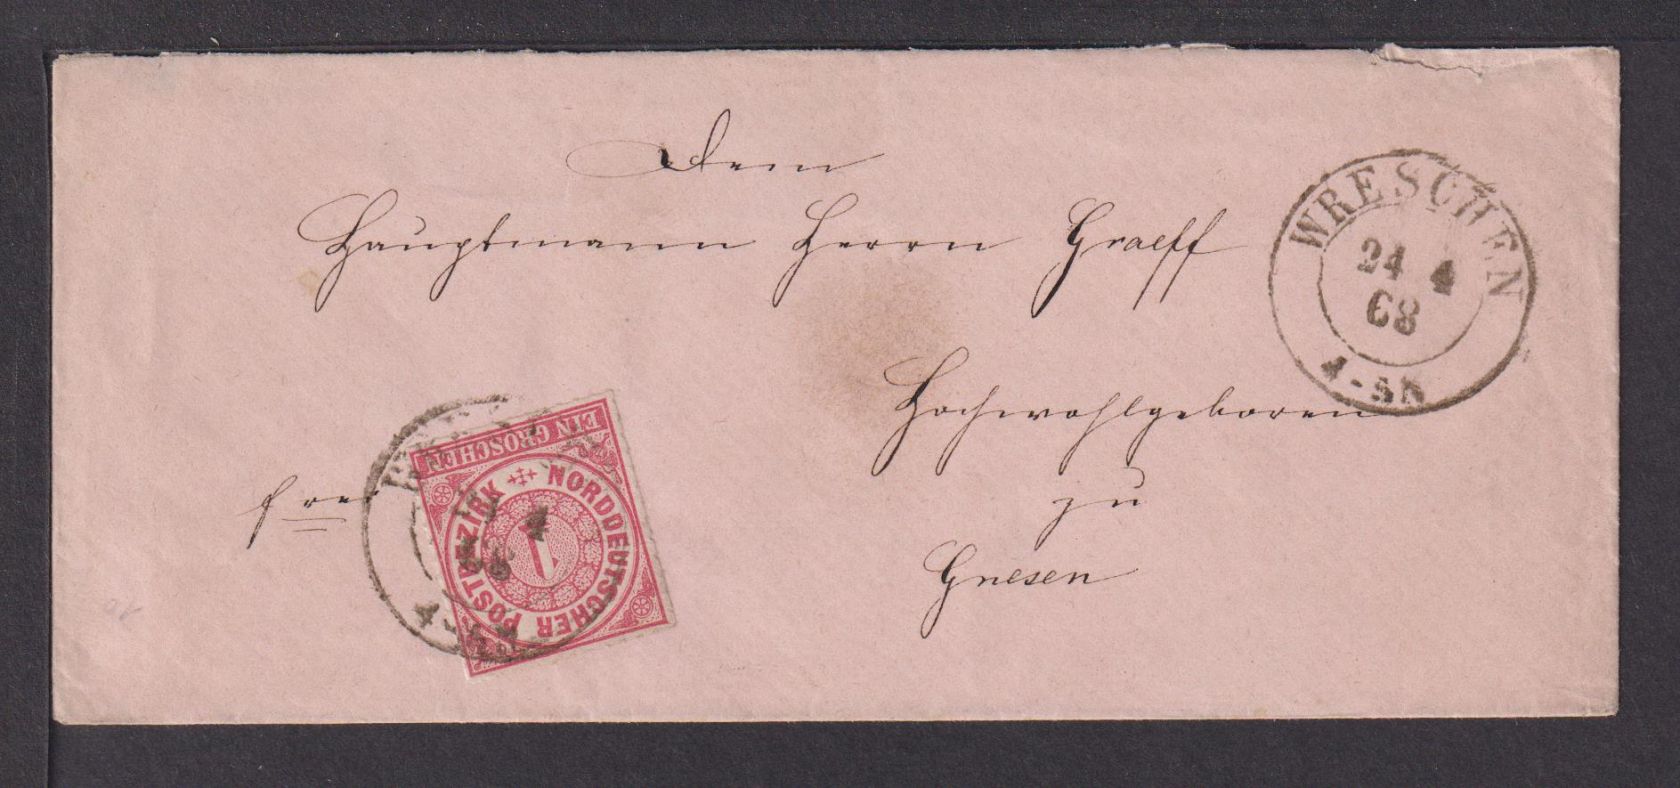 Dem
Hauptmann Herrn Graeff
Hochwohlgeboren
zu
Gnesen
frei
WRESCHEN
24 4
68
4-5N
EIN GROSCHEN
NORDDEUTSCHER POSTBEZIRK
1
4
68
10